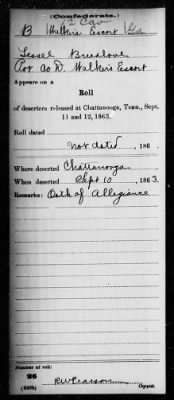 (Confederate.)
2 Cav
B Walker's Escort Ga
Breedlove
Pvt Co D. Walker's Escort
Appears on a
Roll
of deserters released at Chattanooga, Tenn., Sept.
11 and 12, 1863.
Roll dated
not dated, 186 .
Where deserted Chattanooga
When deserted Sept 10, 1863.
Remarks: Oath of Allegiance
Number of roll:
26
R W Pearson
(639b) Copyist.